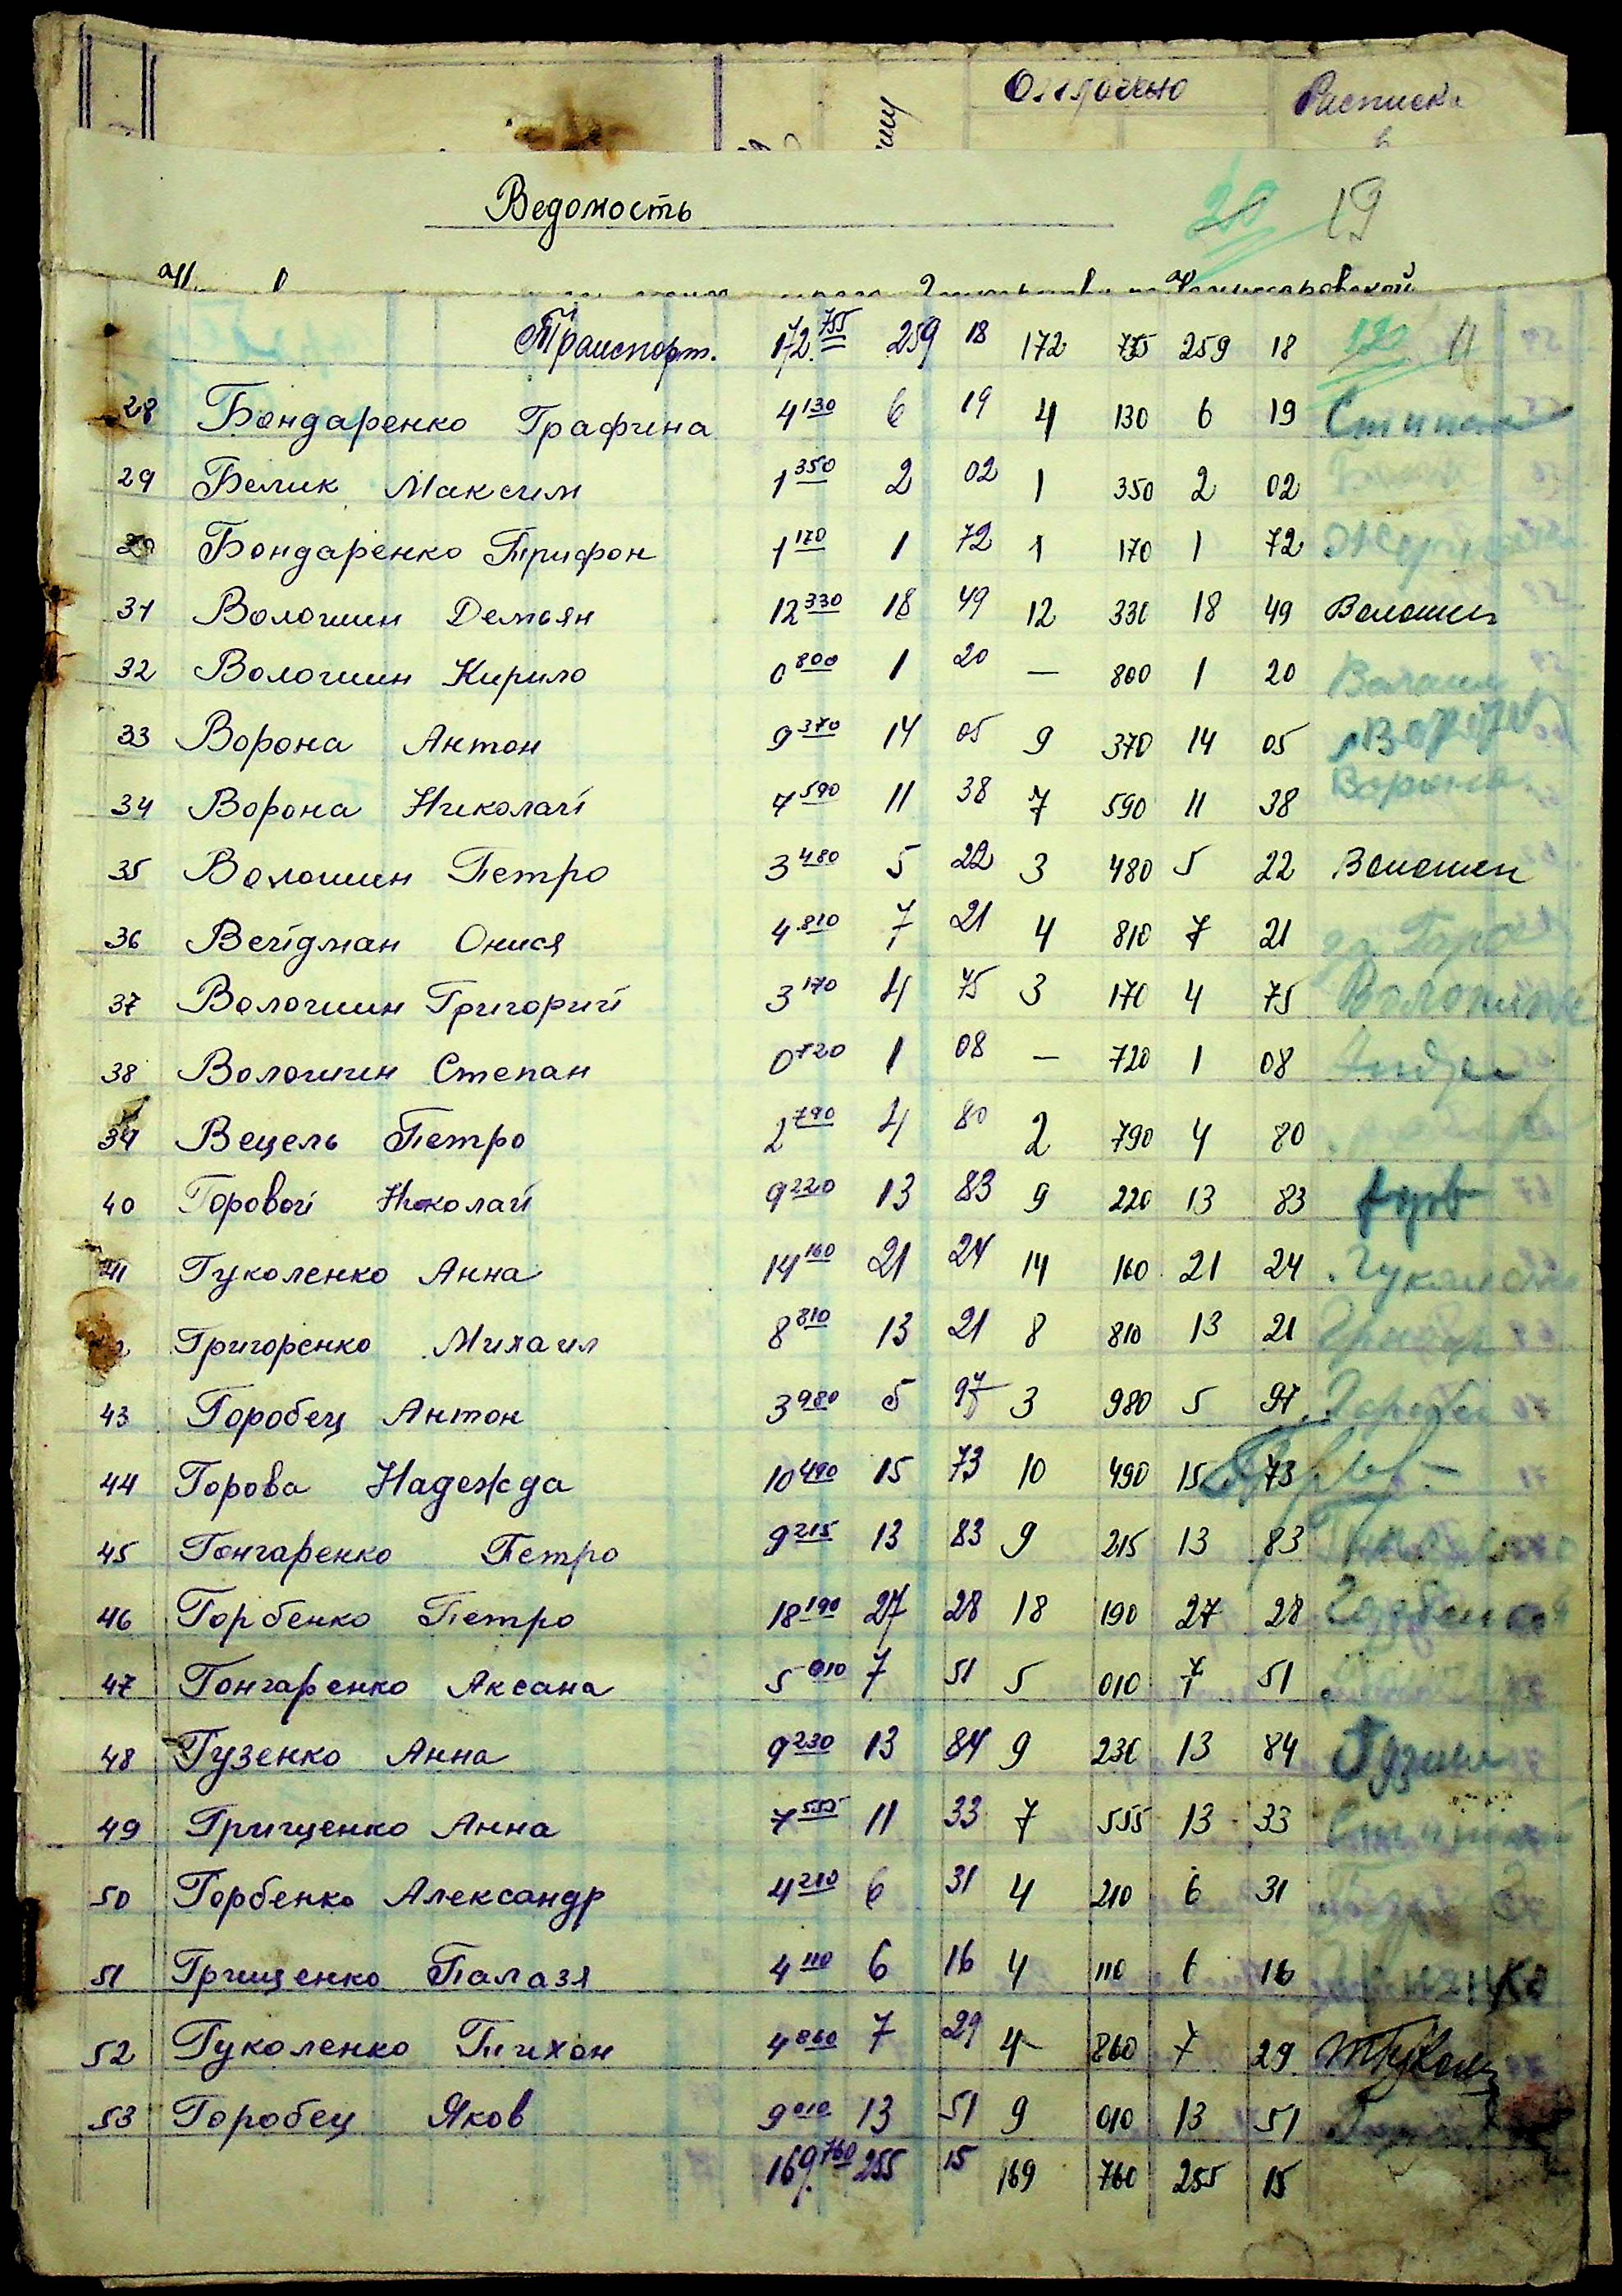 Расписка
Ведомость
20 19
Транспорт. 172.755 259 18 172 755 259 18 120 11
28 Бондаренко Графина 4 130 6 19 4 130 6 19 Степан
29 Белик Максим 1 350 2 02 1 350 2 02
Бондаренко Трифон 1 170 1 72 1 170 1 72
31 Волошин Демьян 12 330 18 49 12 330 18 49 Волошин
32 Волошин Кирило 0 800 1 20 — 800 1 20 Волошин
33 Ворона Антон 9 370 14 05 9 370 14 05 Ворона
34 Ворона Николай 7 590 11 38 7 590 11 38 Ворона
35 Волошин Петро 3 480 5 22 3 480 5 22 Волошин
36 Вейдман Онися 4 810 7 21 4 810 7 21
37 Волошин Григорий 3 170 4 75 3 170 4 75
38 Волошин Степан 0 720 1 08 — 720 1 08
39 Вецель Петро 2 790 4 80 2 790 4 80
40 Горовой Николай 9 220 13 83 9 220 13 83
41 Гуколенко Анна 14 160 21 24 14 160 21 24
Григоренко Михаил 8 810 13 21 8 810 13 21
43 Горобец Антон 3 980 5 97 3 980 5 97
44 Горова Надежда 10 490 15 73 10 490 15 73
45 Гончаренко Петро 9 215 13 83 9 215 13 83
46 Горбенко Петро 18 190 27 28 18 190 27 28
47 Гончаренко Аксана 5 010 7 51 5 010 7 51
48 Гузенко Анна 9 230 13 84 9 230 13 84
49 Грищенко Анна 7 555 11 33 7 555 13 33
50 Горбенко Александр 4 210 6 31 4 210 6 31
51 Грищенко Палазя 4 110 6 16 4 110 6 16
52 Гуколенко Тихон 4 860 7 29 4 860 7 29
53 Горобец Яков 9 010 13 51 9 010 13 51
169.760 255 15 169 760 255 15